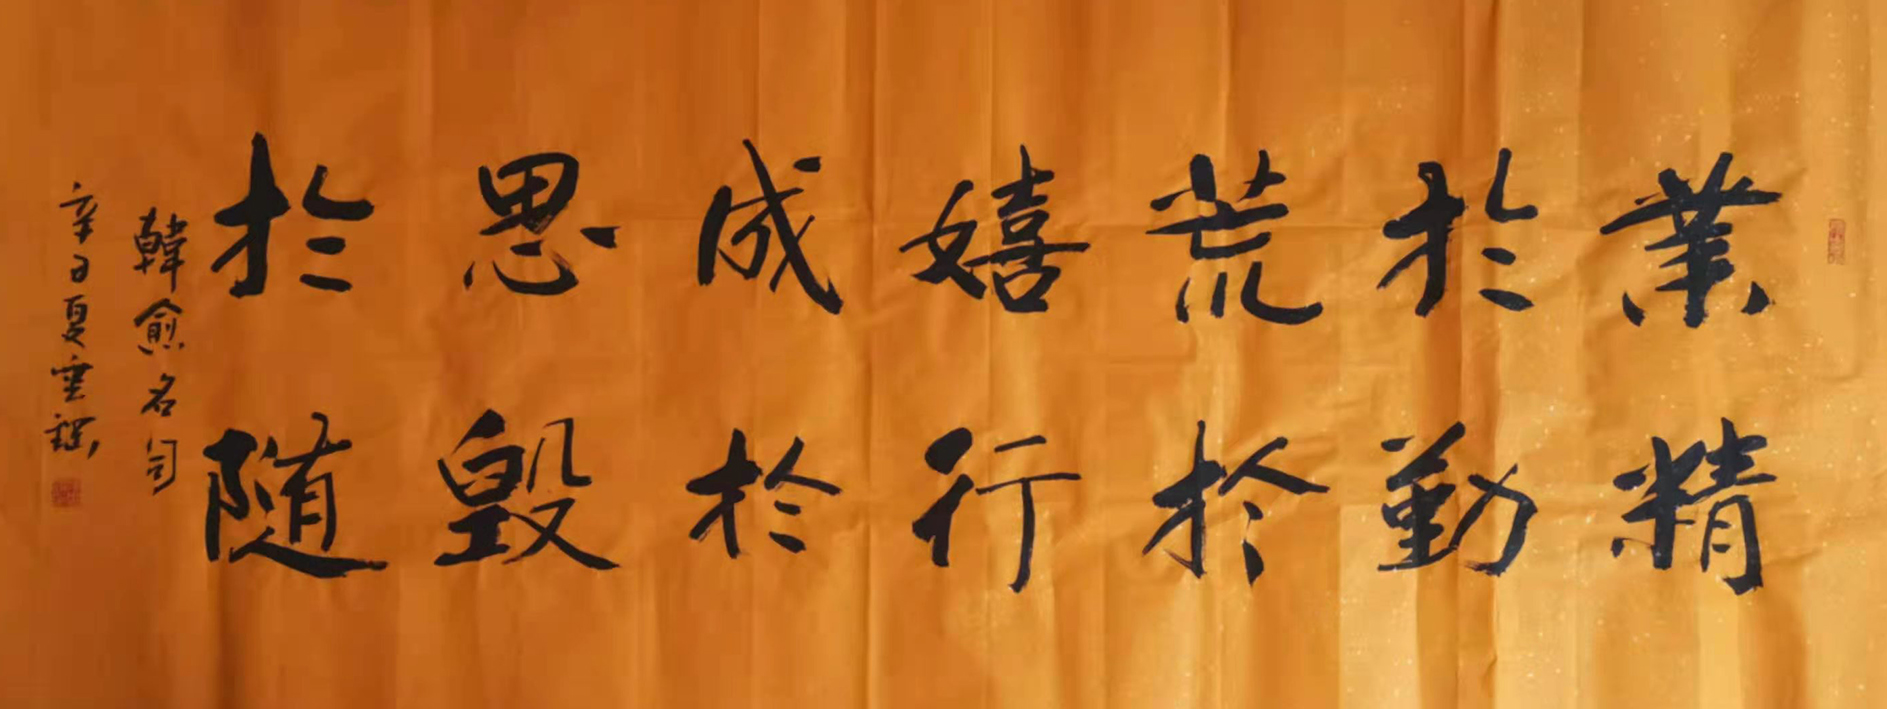 業精
於勤
荒於
嬉行
成於
思毀
於随
韓愈名句
辛丑夏